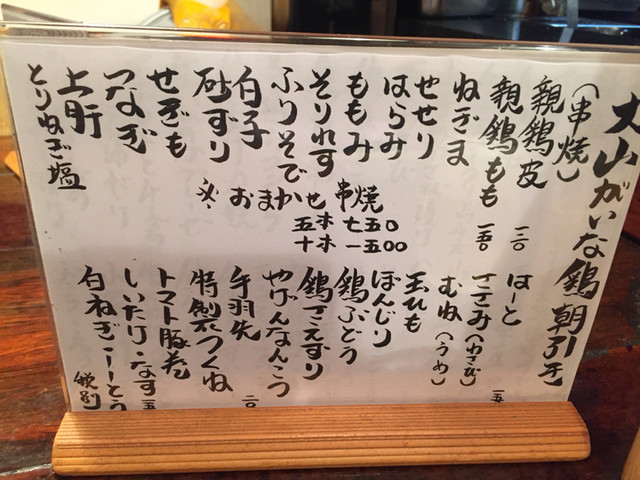 大山がいな鶏朝引き
(串焼)
親鶏皮 一二〇
親鶏もも 一五〇
ねぎま
せせり
はらみ
ももみ
そりれす
ふりそで
白子
砂ずり
せぎも
つなぎ
上肝
とりねぎ塩
おまかせ串焼
五本 七五〇
十本 一五〇〇
はーと
ささみ(わさび)
むね(うめ)
玉ひも
ぼんじり
鶏ぶどう
鶏さえずり
やげんなんこつ
手羽先 二〇
特製つくね
トマト豚巻
しいたけ・なす 一五
白ねぎ・しーとう
税別